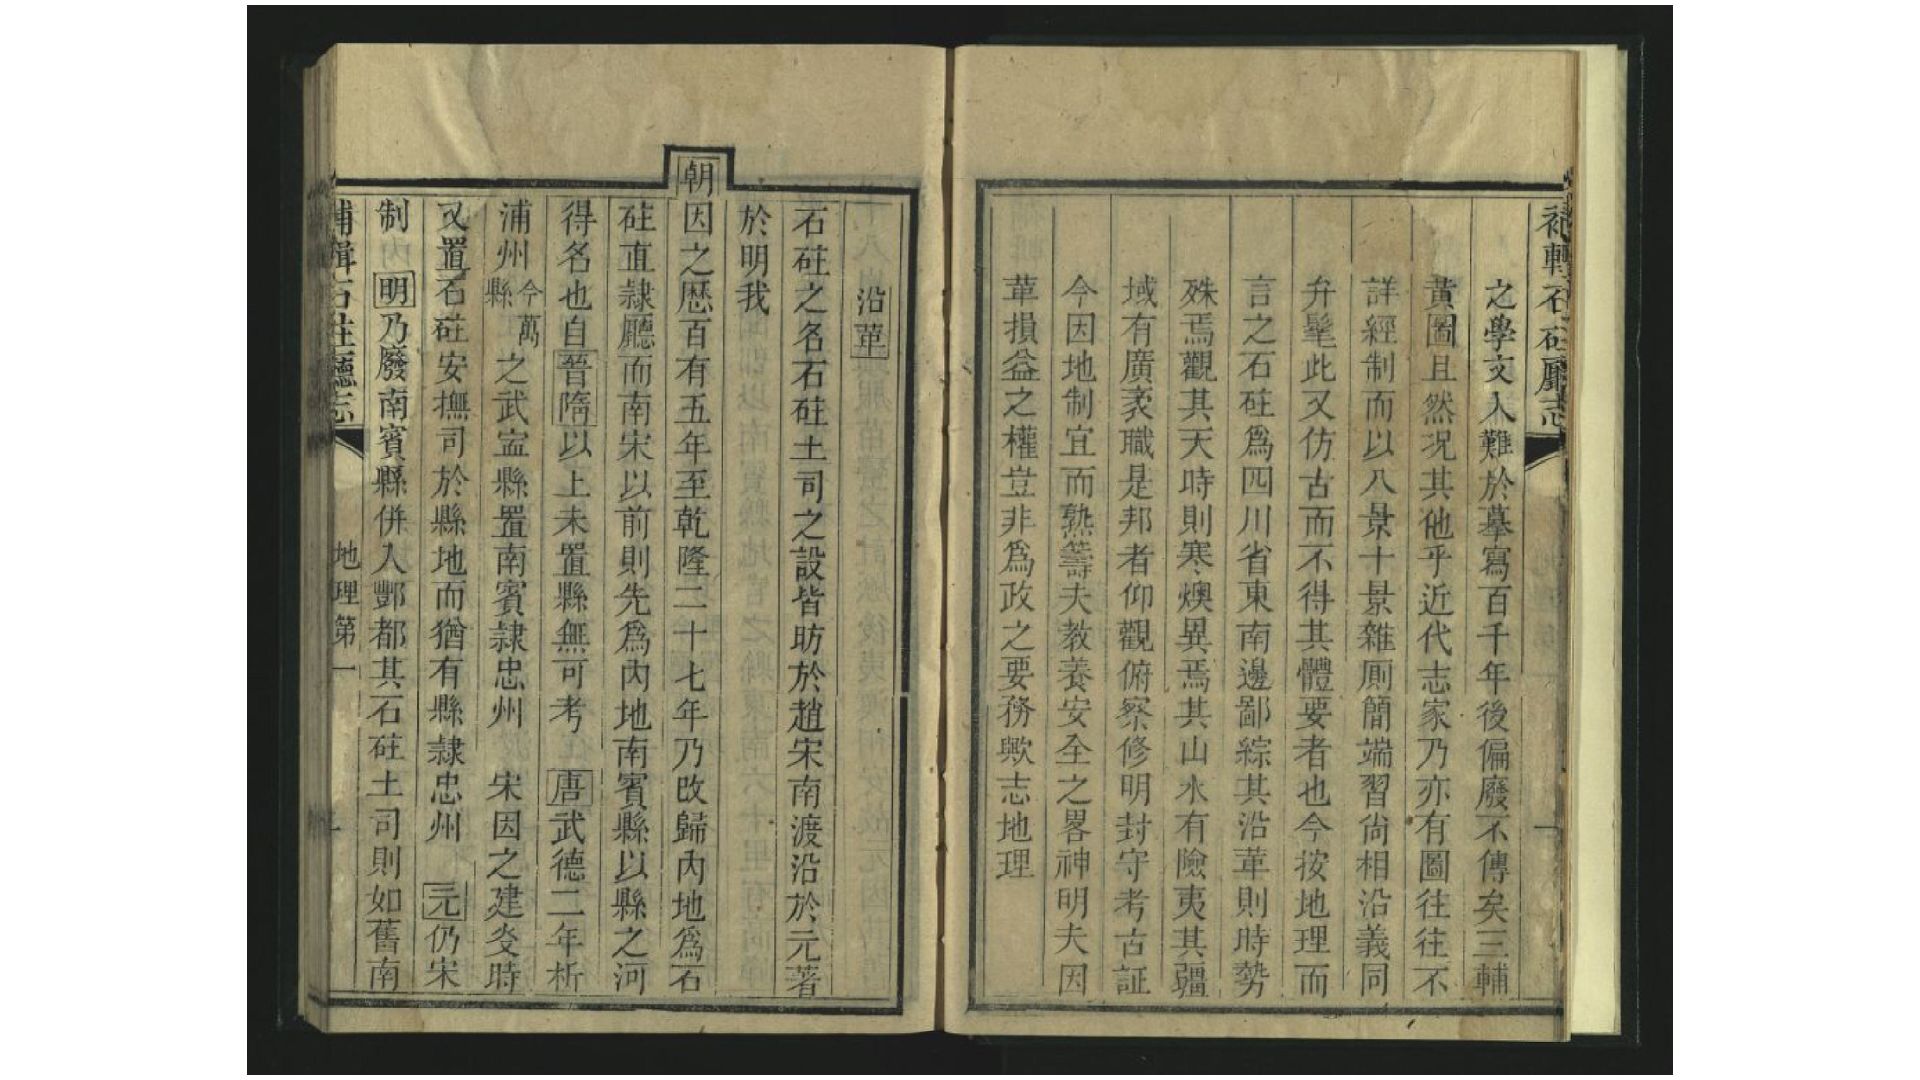 補輯石砫廳志
之學文人難於摹寫百千年後偏廢不傳矣三輔
黃圖且然况其他乎近代志家乃亦有圖往往不
詳經制而以八景十景雜厠簡端習尙相沿義同
弁髦此又仿古而不得其體要者也今按地理而
言之石砫爲四川省東南邊鄙綜其沿革則時勢
殊焉觀其天時則寒燠異焉其山水有險夷其疆
域有廣袤職是邦者仰觀俯察修明封守考古証
今因地制宜而熟籌夫教養安全之畧神明夫因
革損益之權豈非爲政之要務歟志地理
沿革
石砫之名石砫土司之設皆昉於趙宋南渡沿於元著
於明我
朝因之歷百有五年至乾隆二十七年乃改歸內地爲石
砫直隷廳而南宋以前則先爲內地南賓縣以縣之河
得名也自晉隋以上未置縣無可考 唐武德二年析
浦州今萬縣之武寍縣置南賓隷忠州 宋因之建炎時
又置石砫安撫司於縣地而猶有縣隷忠州 元仍宋
制 明乃廢南賓縣併入酆都其石砫土司則如舊南
補輯石砫廳志 地理第一